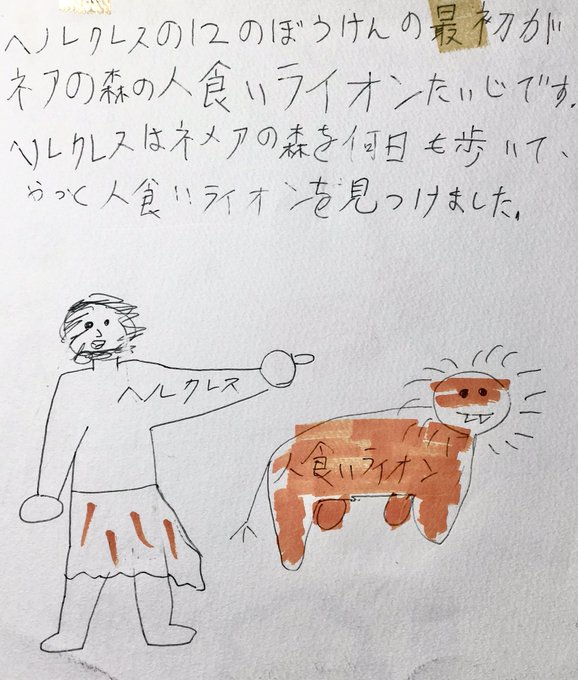 ヘルクレスの12のぼうけんの最初が
ネアの森の人食いライオンたいじです。
ヘルクレスはネメアの森を何日も歩いて、
やっと人食いライオンを見つけました。
ヘルクレス
人食いライオン